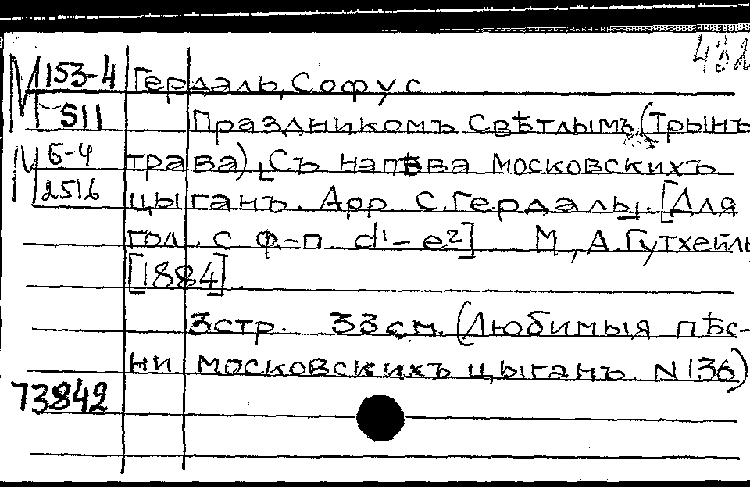 432
М 153-4 Гердаль, Софус
511 Праздникомъ свѣтлымъ (Трынъ
М 6-4 трава). Съ напѣва московскихъ
2516 цыганъ. Арр. С. Гердаль. [Для
гол. с ф-п. d¹-e²] М., А. Гутхейль
[1884]
3стр. 33см. (Любимыя пѣс-
ни московскихъ цыганъ. N 136)
73842